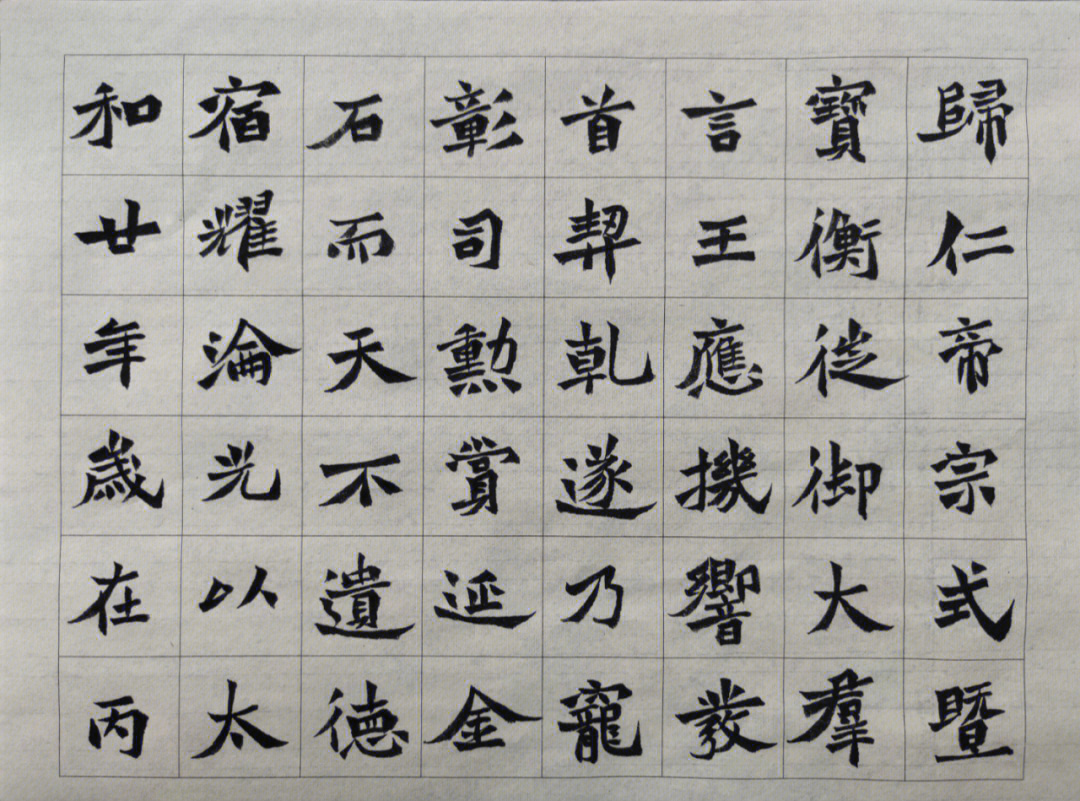 歸仁帝宗式暨
寶衡徙御大羣
言王應機響發
首契乹遂乃寵
彰司勳賞延金
石而天不遺德
宿耀淪光以太
和廿年歲在丙